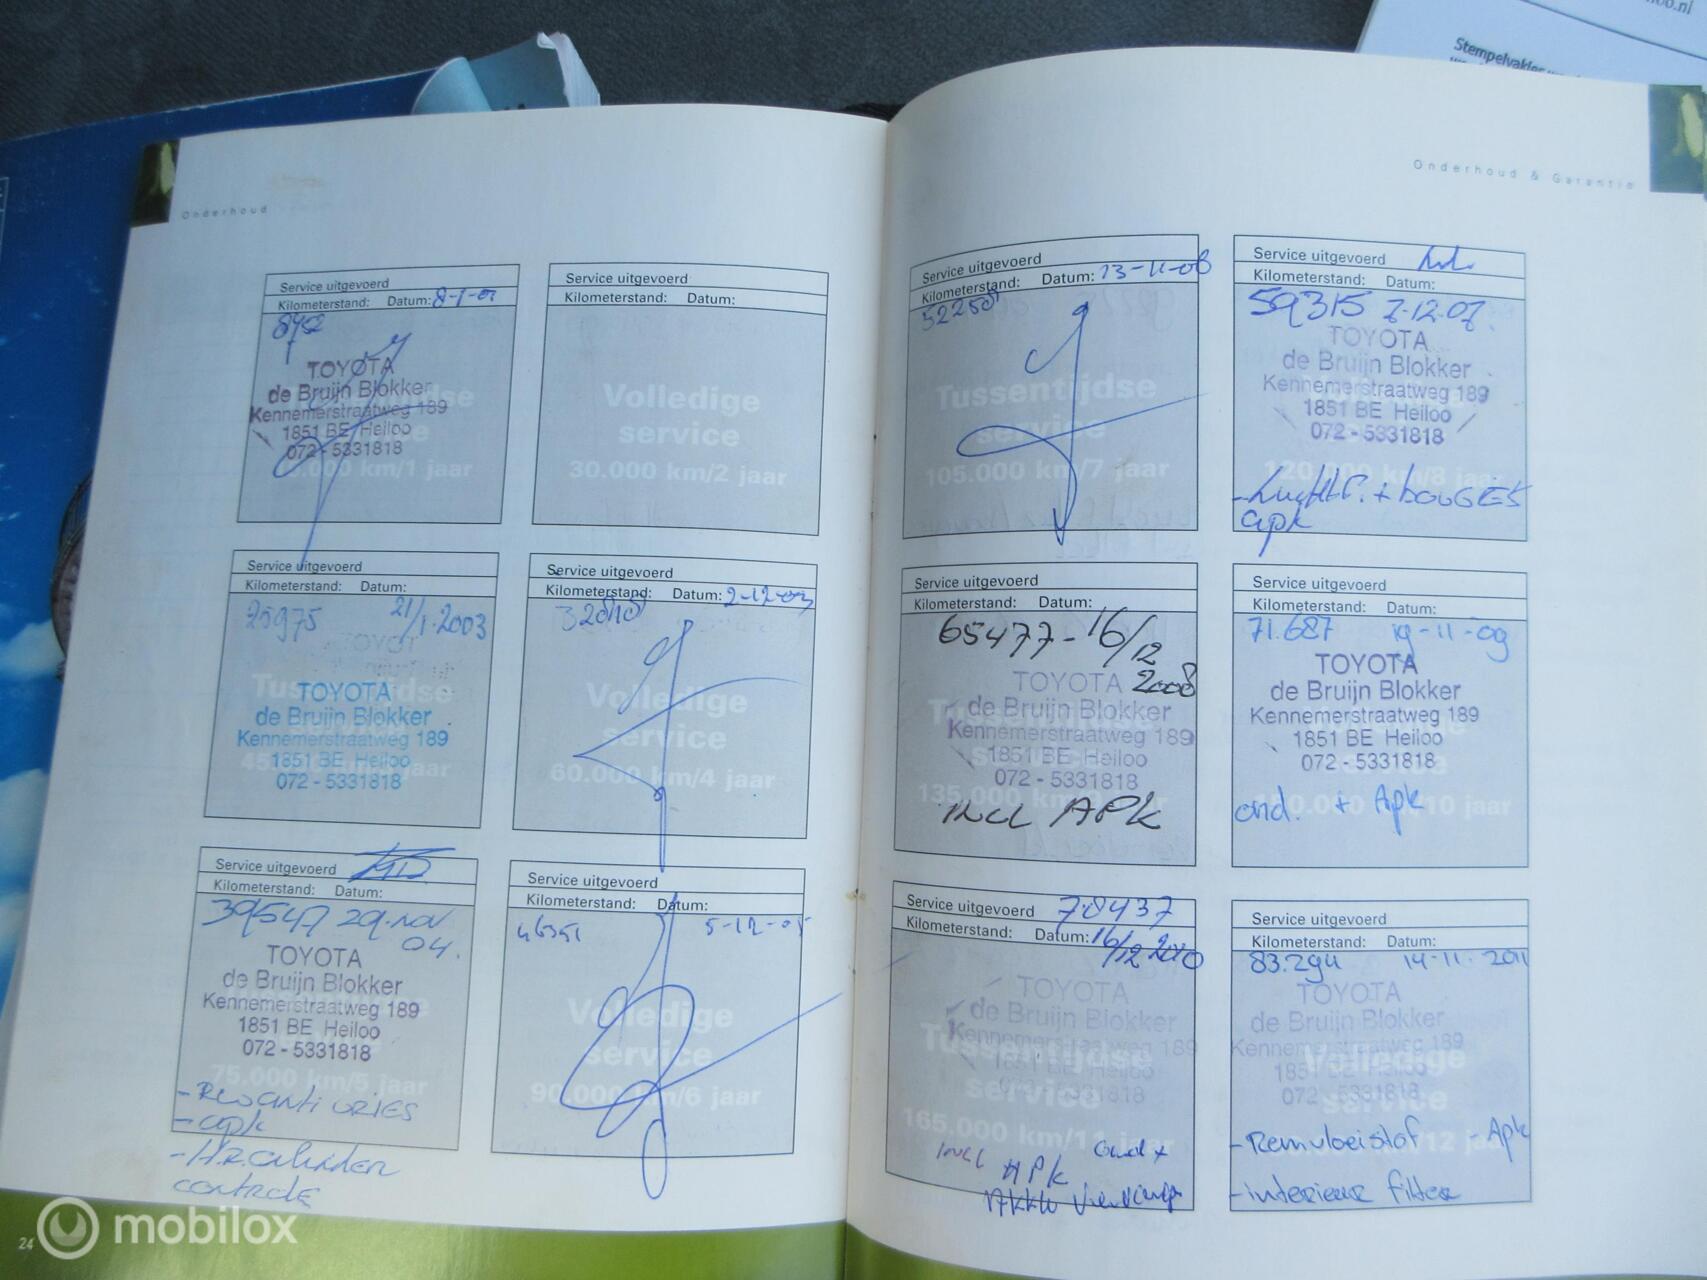 Stempelvakjes
Onderhoud
Onderhoud & Garantie
Service uitgevoerd
Kilometerstand: Datum: 8-1-02
8452
TOYOTA
de Bruijn Blokker
Kennemerstraatweg 189
1851 BE Heiloo
072 - 5331818
km/1 jaar
Service uitgevoerd
Kilometerstand: Datum:
Volledige
service
30.000 km/2 jaar
Service uitgevoerd
Kilometerstand: Datum:
25975 21/1-2003
TOYOTA
de Bruijn Blokker
Kennemerstraatweg 189
1851 BE Heiloo
072 - 5331818
Service uitgevoerd
Kilometerstand: Datum: 2-12-03
Volledige
service
60.000 km/4 jaar
Service uitgevoerd
Kilometerstand: Datum:
39547 29-nov
04.
TOYOTA
de Bruijn Blokker
Kennemerstraatweg 189
1851 BE Heiloo
072 - 5331818
75.000 km/5 jaar
- apk
controle
Service uitgevoerd
Kilometerstand: Datum:
46351 5-12-05
Volledige
service
90.000 km/6 jaar
Service uitgevoerd
Kilometerstand: Datum: 13-11-06
52250
Tussentijdse
service
105.000 km/7 jaar
Service uitgevoerd
Kilometerstand: Datum:
59315 7-12-07.
TOYOTA
de Bruijn Blokker
Kennemerstraatweg 189
1851 BE Heiloo
072 - 5331818
120.000 km/8 jaar
- Luchtf. + bougies
apk
Service uitgevoerd
Kilometerstand: Datum:
65477 - 16/12
2008
TOYOTA
de Bruijn Blokker
Kennemerstraatweg 189
1851 BE Heiloo
072 - 5331818
135.000 km
INCL APK
Service uitgevoerd
Kilometerstand: Datum:
71.687 19-11-09
TOYOTA
de Bruijn Blokker
Kennemerstraatweg 189
1851 BE Heiloo
072 - 5331818
/10 jaar
ond. + Apk
Service uitgevoerd 78437
Kilometerstand: Datum: 16/12 2010
TOYOTA
de Bruijn Blokker
Kennemerstraatweg 189
1851 BE Heiloo
072 - 5331818
Tussentijdse
service
165.000 km/11 jaar
INCL APK
Service uitgevoerd
Kilometerstand: Datum:
83.294 14-11-2011
TOYOTA
de Bruijn Blokker
Kennemerstraatweg 189
1851 BE Heiloo
072 - 5331818
Volledige
service
/12 jaar
- Remvloeistof - Apk
- interieur filter
24
mobilox